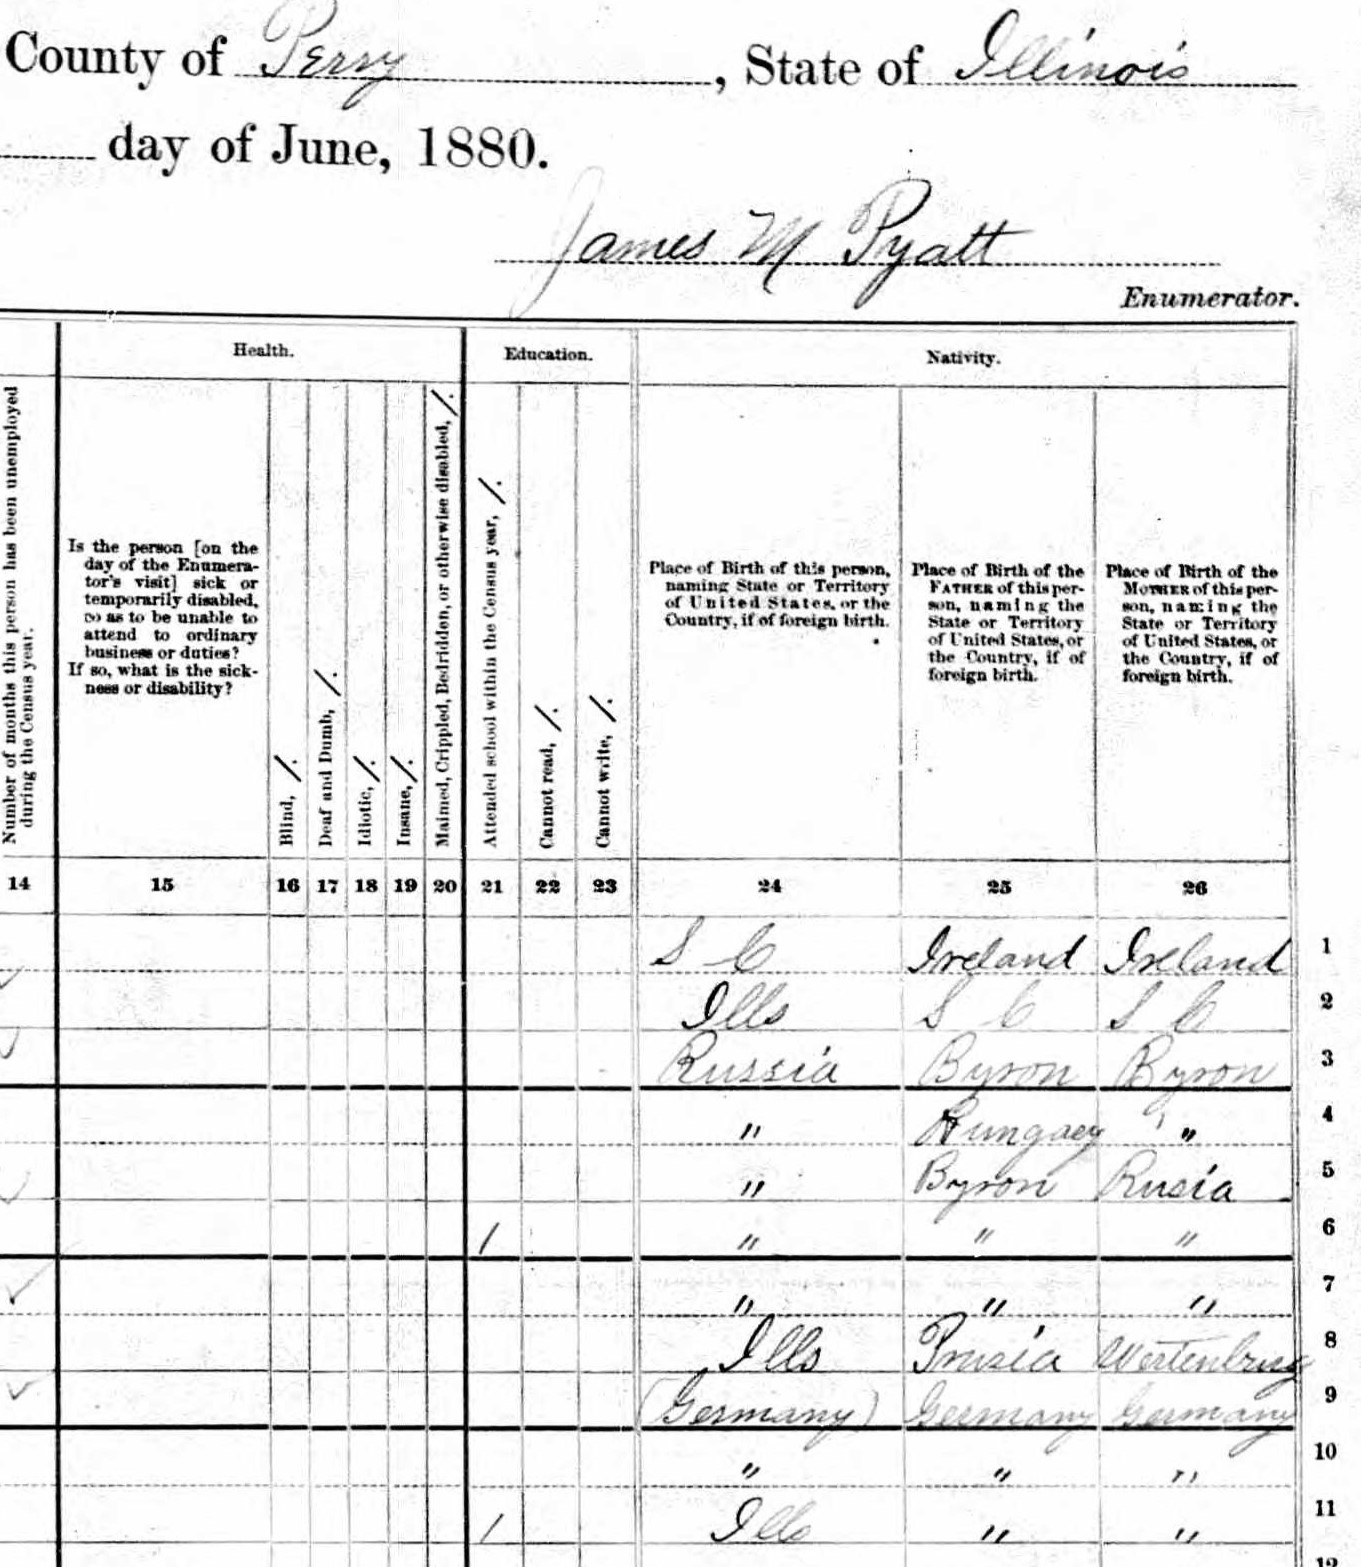 County of Perry , State of Illinois
day of June, 1880.
James M Pyatt
Enumerator.
Number of months this person has been unemployed
during the Census year.
Health.
Is the person [on the
day of the Enumera-
tor's visit] sick or
temporarily disabled,
so as to be unable to
attend to ordinary
business or duties?
If so, what is the sick-
ness or disability?
Blind, /.
Deaf and Dumb, /.
Idiotic, /.
Insane, /.
Maimed, Crippled, Bedridden, or otherwise disabled, /.
Education.
Attended school within the Census year, /.
Cannot read, /.
Cannot write, /.
Nativity.
Place of Birth of this person,
naming State or Territory
of United States, or the
Country, if of foreign birth.
Place of Birth of the
FATHER of this per-
son, naming the
State or Territory
of United States, or
the Country, if of
foreign birth.
Place of Birth of the
MOTHER of this per-
son, naming the
State or Territory
of United States, or
the Country, if of
foreign birth.
14 15 16 17 18 19 20 21 22 23 24 25 26
S C Ireland Ireland 1
Ills S C S C 2
Russia Byron Byron 3
" Hungaey " 4
" Byron Rusia 5
/ " " " 6
" " " 7
Ills Prusia Wertenburg 8
(Germany) Germany Germany 9
" " " 10
/ Ills " " 11
12